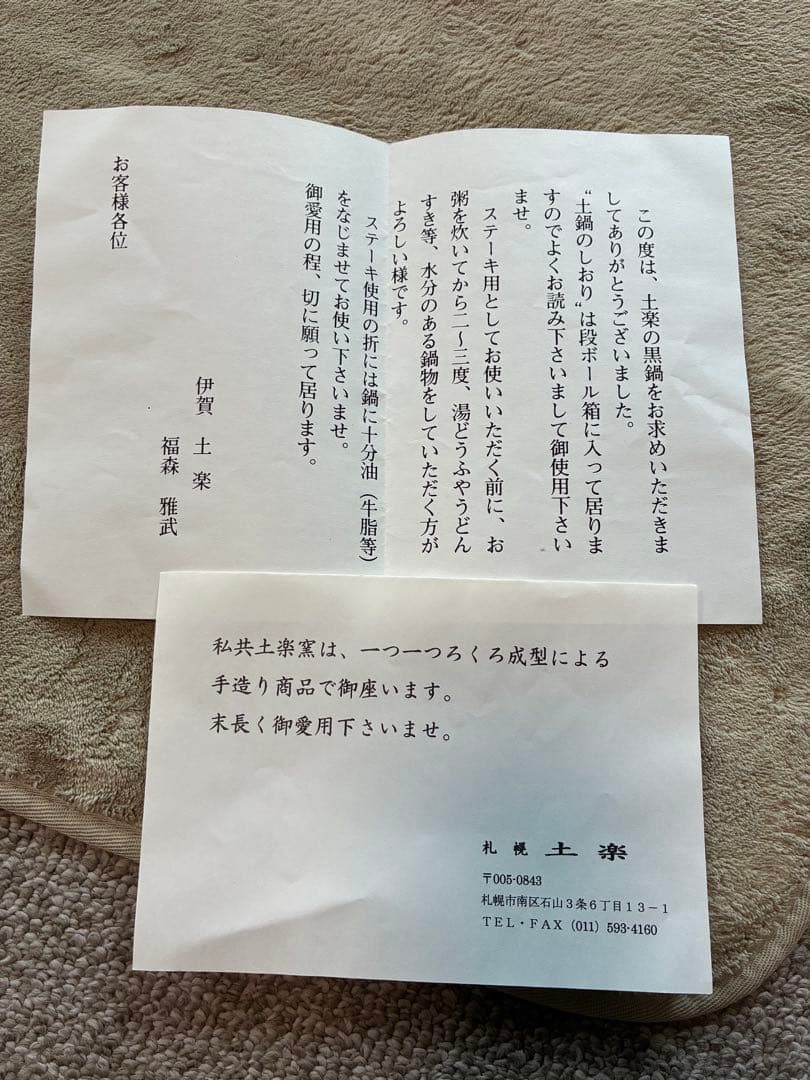 この度は、土楽の黒鍋をお求めいただきま
してありがとうございました。
“土鍋のしおり”は段ボール箱に入って居りま
すのでよくお読み下さいまして御使用下さい
ませ。
ステーキ用としてお使いいただく前に、お
粥を炊いてから二〜三度、湯どうふやうどん
すき等、水分のある鍋物をしていただく方が
よろしい様です。
ステーキ使用の折には鍋に十分油（牛脂等）
をなじませてお使い下さいませ。
御愛用の程、切に願って居ります。
伊賀 土楽
福森 雅武
お客様各位
私共土楽窯は、一つ一つろくろ成型による
手造り商品で御座います。
末長く御愛用下さいませ。
札幌 土楽
〒005-0843
札幌市南区石山３条６丁目１３−１
ＴＥＬ・ＦＡＸ (011) 593-4160